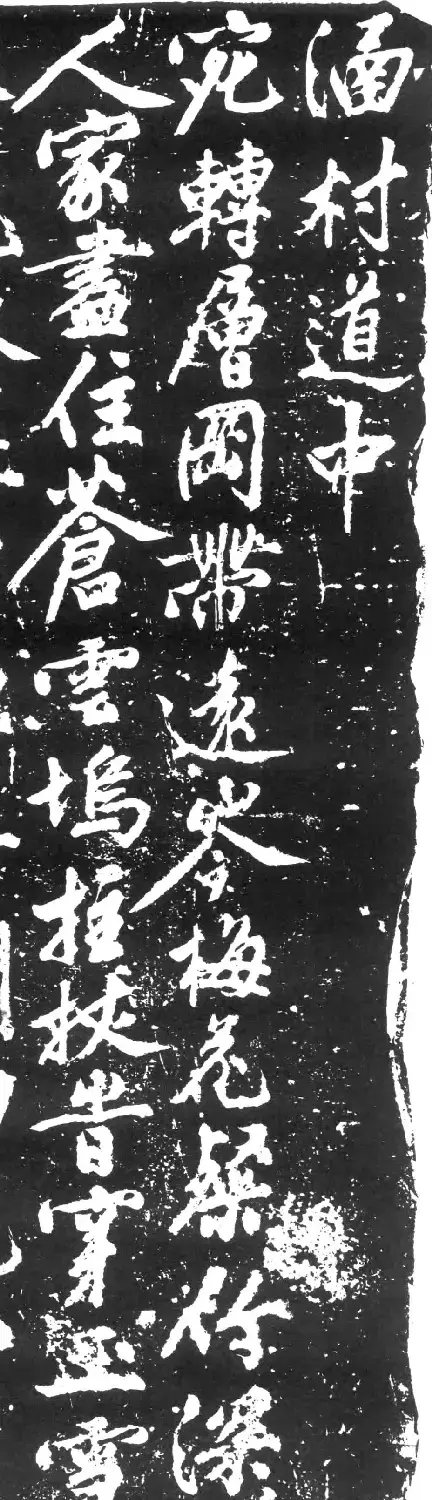 涵村道中
宛轉層岡帶遠岑梅花粲竹深
人家盡住蒼雲塢拄杖旹穿玉雪